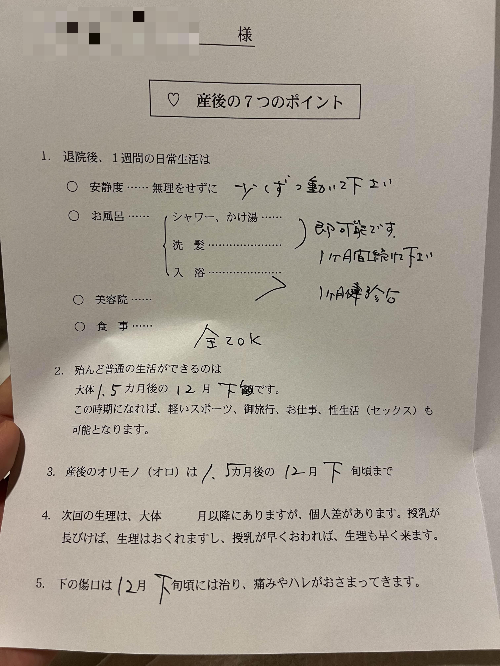 様
♡ 産後の7つのポイント
1. 退院後、1週間の日常生活は
○ 安静度……無理をせずに 少しずつ動いて下さい
○ お風呂…… シャワー、かけ湯…… 即可能です
洗髪…………………… 1ヶ月間続けて下さい
入浴……………………
○ 美容院…… 1ヶ月健診后
○ 食事…… 全てOK
2. 殆んど普通の生活ができるのは
大体1.5カ月後の12月下旬です。
この時期になれば、軽いスポーツ、御旅行、お仕事、性生活（セックス）も
可能となります。
3. 産後のオリモノ（オロ）は1.5カ月後の12月下旬頃まで
4. 次回の生理は、大体 月以降にありますが、個人差があります。授乳が
長びけば、生理はおくれますし、授乳が早くおわれば、生理も早く来ます。
5. 下の傷口は12月下旬頃には治り、痛みやハレがおさまってきます。